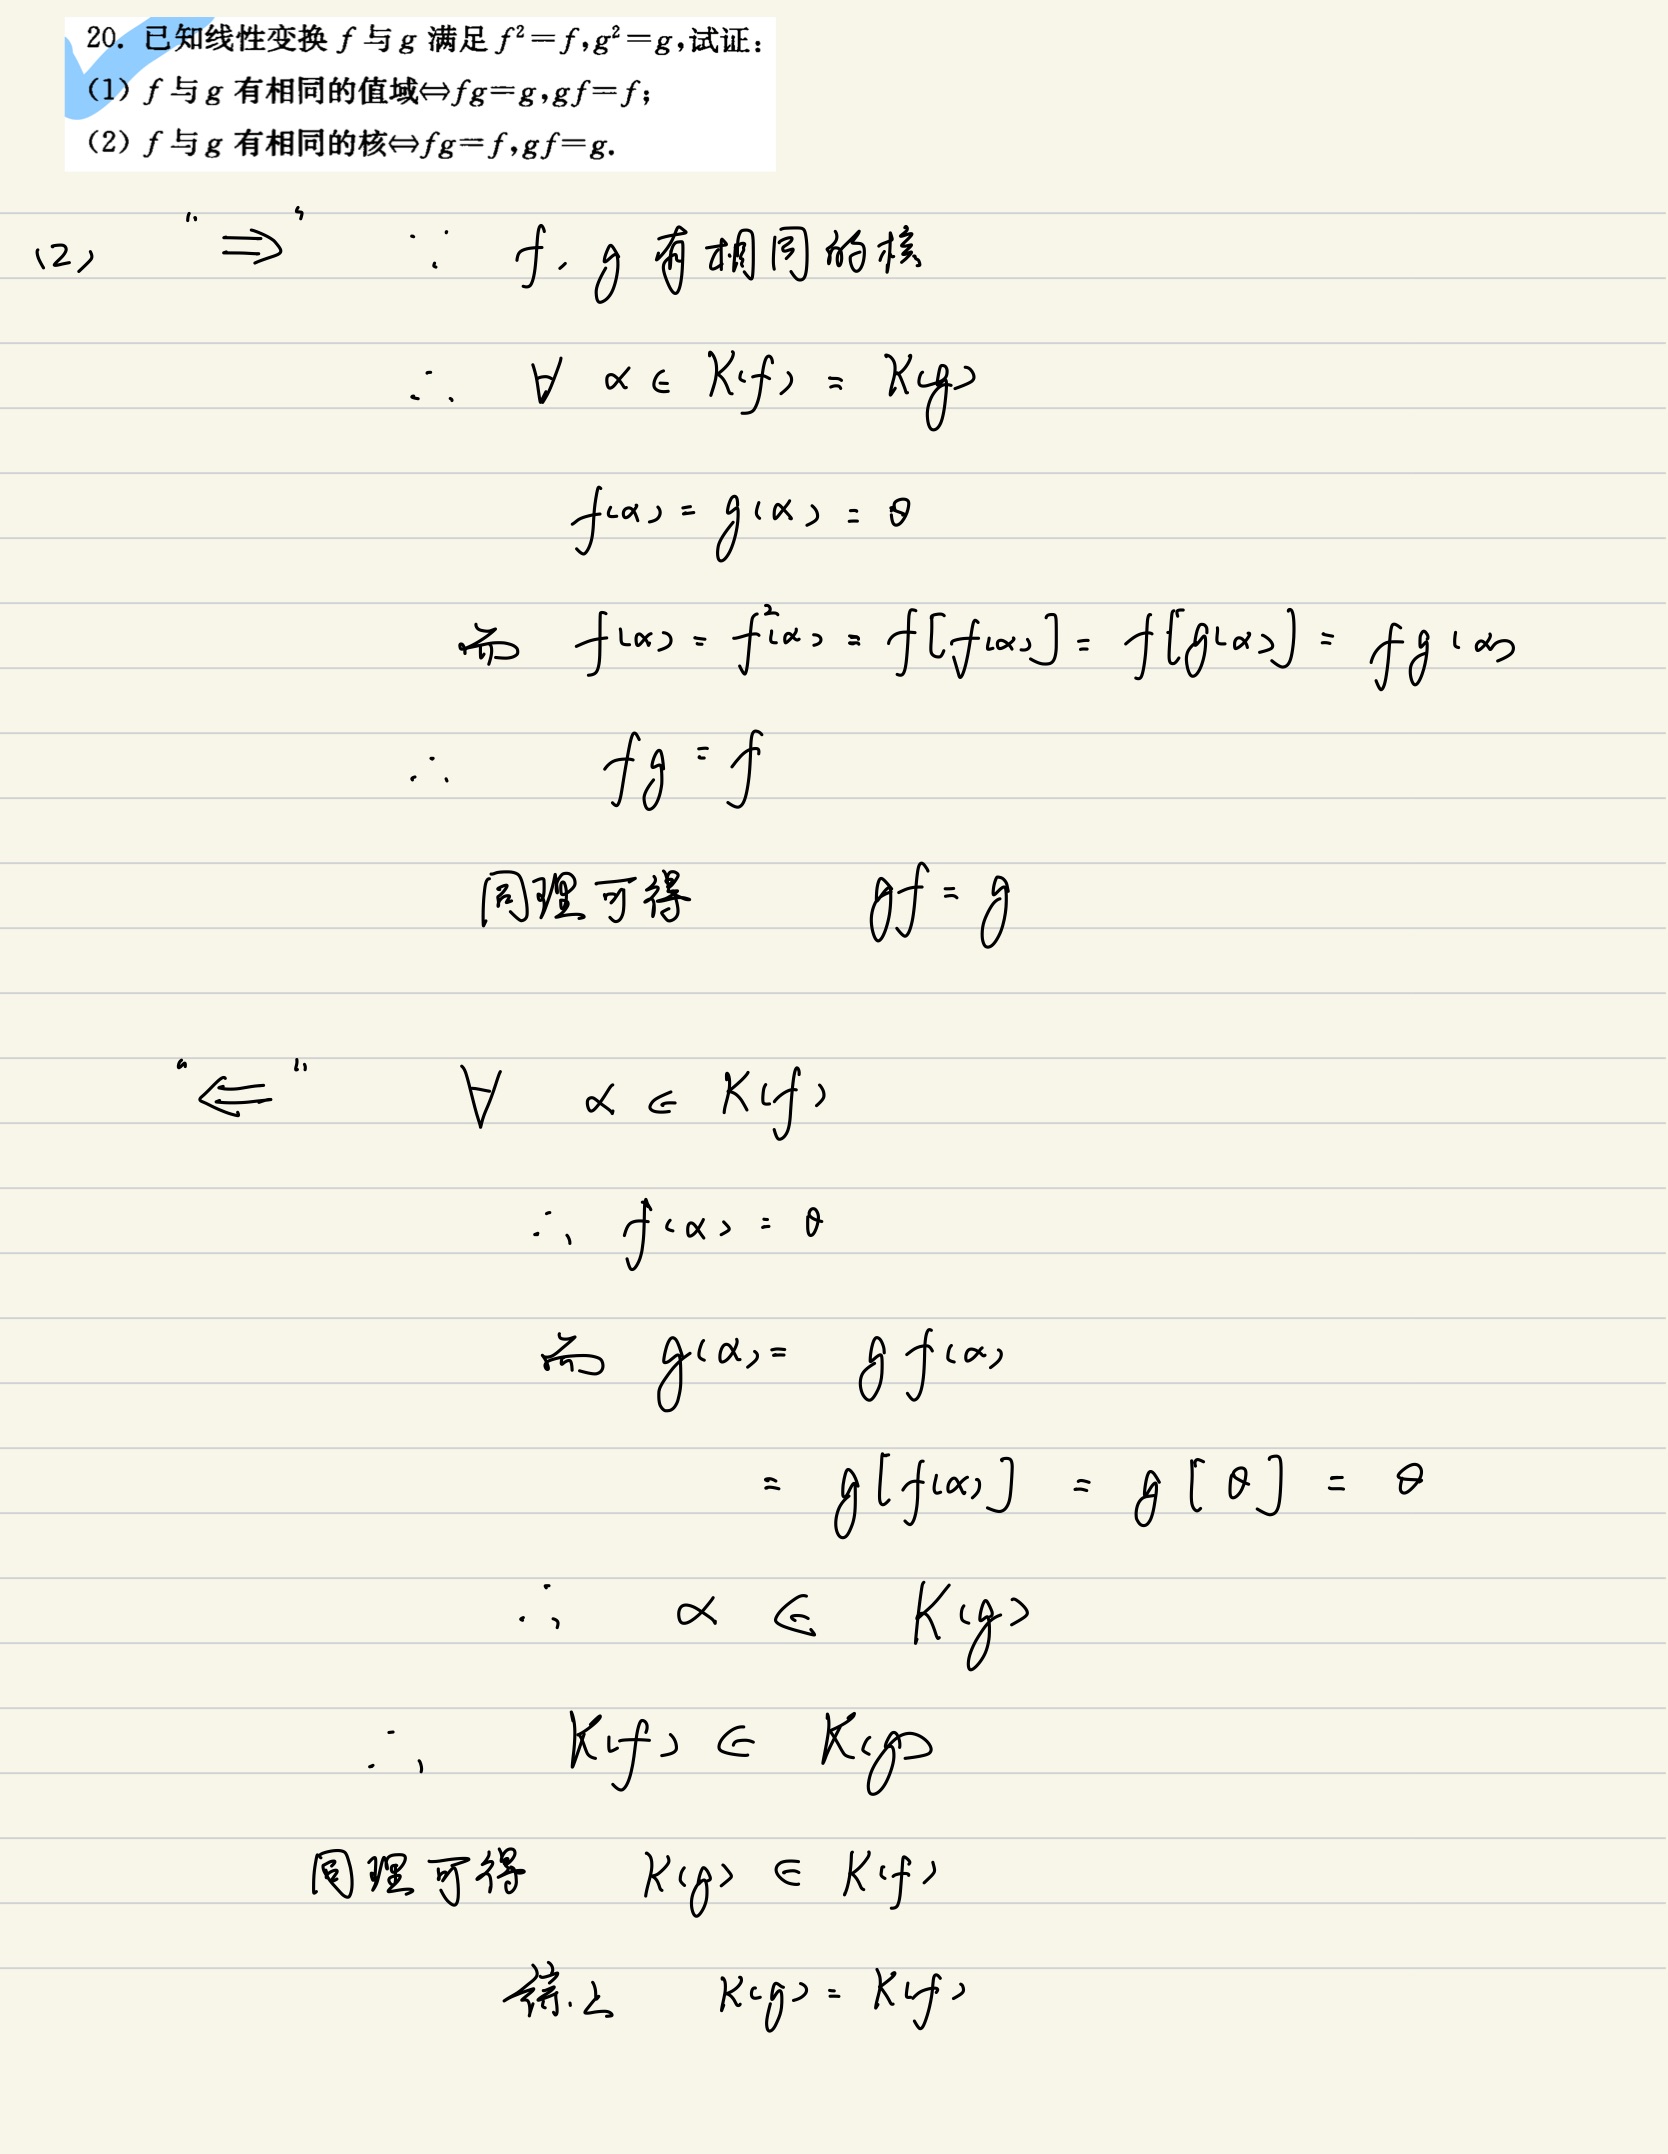 20. 已知线性变换 f 与 g 满足 f²=f,g²=g,试证:
(1) f 与 g 有相同的值域⇔fg=g,gf=f;
(2) f 与 g 有相同的核⇔fg=f,gf=g.
(2) "⇒" ∵ f, g 有相同的核
∴ ∀ α ∈ K(f) = K(g)
f(α) = g(α) = θ
而 f(α) = f²(α) = f[f(α)] = f[g(α)] = fg(α)
∴ fg = f
同理可得 gf = g
"⇐" ∀ α ∈ K(f)
∴ f(α) = θ
而 g(α) = gf(α)
= g[f(α)] = g[θ] = θ
∴ α ∈ K(g)
∴ K(f) ∈ K(g)
同理可得 K(g) ∈ K(f)
综上 K(g) = K(f)